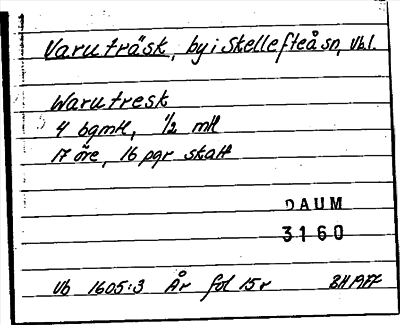 Varuträsk, by i Skellefteå sn, Vb.l.
Warutresk
4 bgmtl, ½ mtl
17 öre, 16 pgr skatt
DAUM
3160
Vb 1605:3 År fol 15r